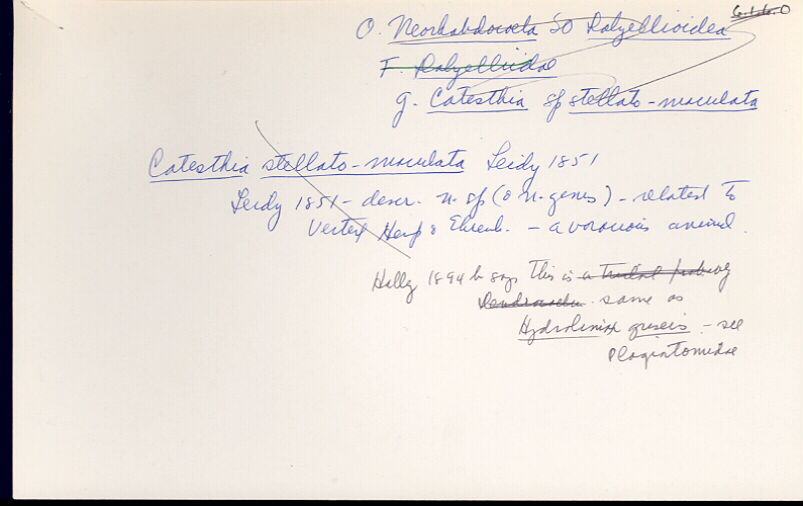 6.1.6.0
O. Neorhabdocoela SO Dalyellioidea
F. Dalyellidae
g. Catesthia sp stellato-maculata
Catesthia stellato-maculata Leidy 1851
Leidy 1851 - descr. n. sp (& n. genus) - related to
Vortex Hemp & Ehrenb. - a voracious animal.
1894 b says This is a
Dendrocoelum same as
Hydrolimax griseus - see
Plagiostomidae